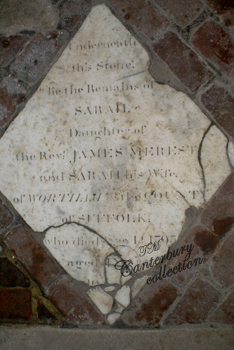 Underneath
this Stone,
lie the Remains of
SARAH
Daughter of
the Revd. JAMES MEREST
and SARAH his Wife,
of WORTHAM COUNTY
of SUFFOLK,
who died
aged
The
Canterbury
collection